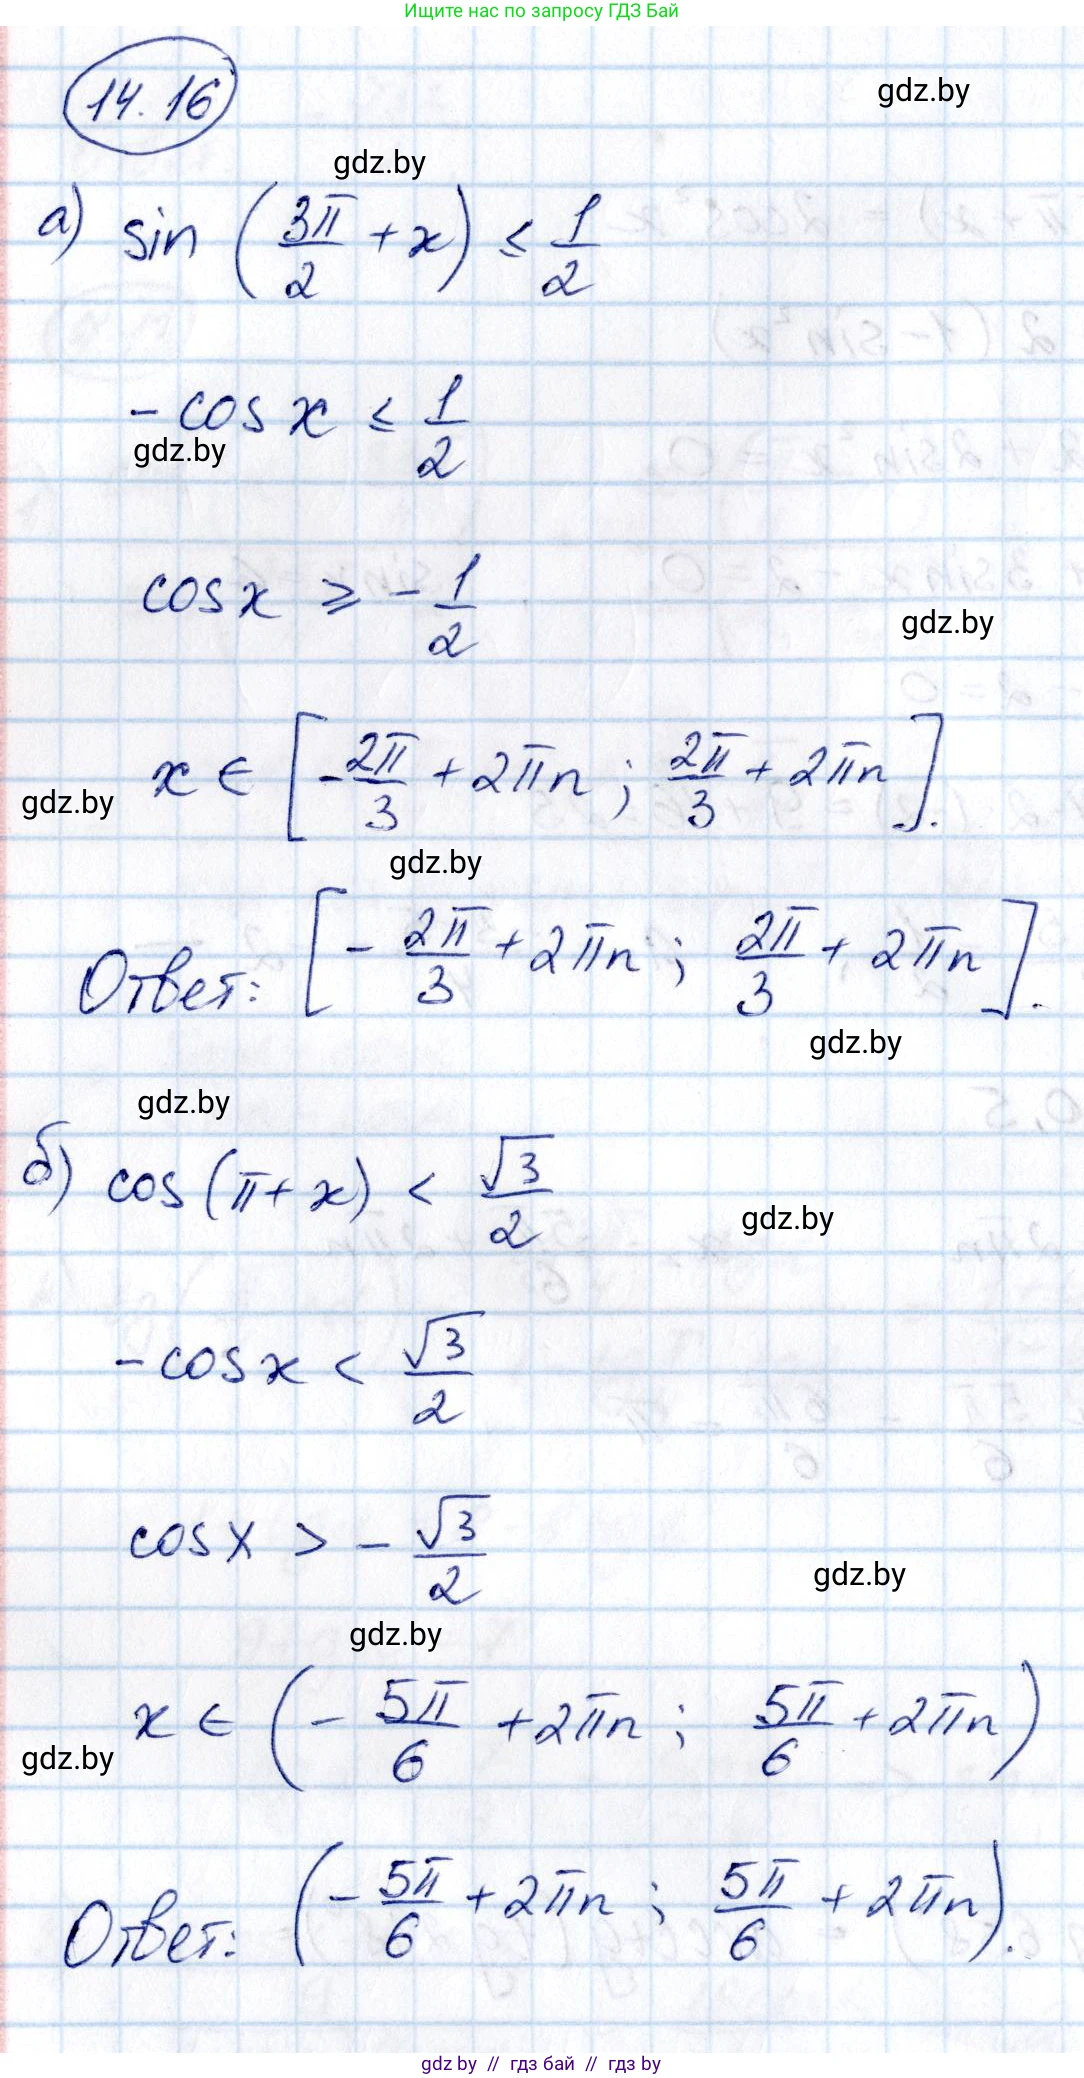 Ищите нас по запросу ГДЗ Бай
14.16
gdz.by
gdz.by
а) sin (3π/2 + x) ≤ 1/2
-cos x ≤ 1/2
gdz.by
cos x ≥ -1/2
gdz.by
x ∈ [-2π/3 + 2πn ; 2π/3 + 2πn].
gdz.by
gdz.by
Ответ: [-2π/3 + 2πn ; 2π/3 + 2πn].
gdz.by
gdz.by
б) cos (π + x) < √3/2
gdz.by
-cos x < √3/2
cos x > -√3/2
gdz.by
gdz.by
x ∈ (-5π/6 + 2πn ; 5π/6 + 2πn)
gdz.by
Ответ: (-5π/6 + 2πn ; 5π/6 + 2πn).
gdz.by // гдз бай // гдз by